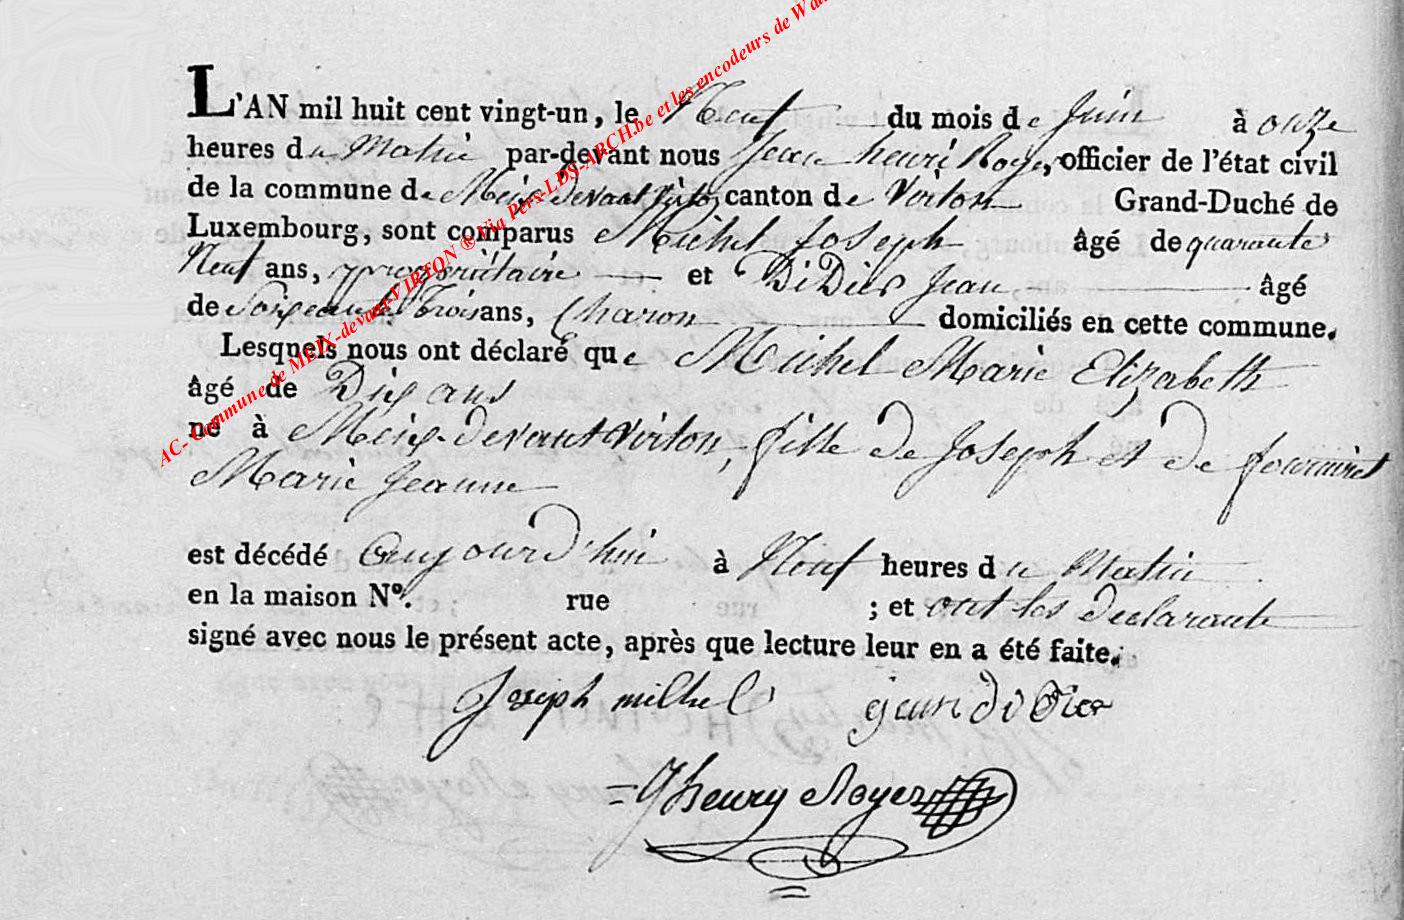 AC- Commune de MEIX-devant-VIRTON ® Via Pers-LDS-ARCH.be et les encodeurs de
L'AN mil huit cent vingt-un, le Neuf du mois de Juin à onze
heures du Matin par-devant nous Jean henri Royer, officier de l'état civil
de la commune de Meix-devant Virton, canton de Virton Grand-Duché de
Luxembourg, sont comparus Michel Joseph âgé de quarante
Neuf ans, propriétaire et DiDier Jean âgé
de Soixante Trois ans, Charon domiciliés en cette commune.
Lesquels nous ont déclaré que Michel Marie Elizabeth
âgé de Dix ans
né à Meix-devant Virton, fille de Joseph et de fourniret
Marie Jeanne
est décédé aujourd'hui à Neuf heures du Matin
en la maison N°. rue ; et ont les declarants
signé avec nous le présent acte, après que lecture leur en a été faite.
Joseph milhel jean didier
Jhenry Royer